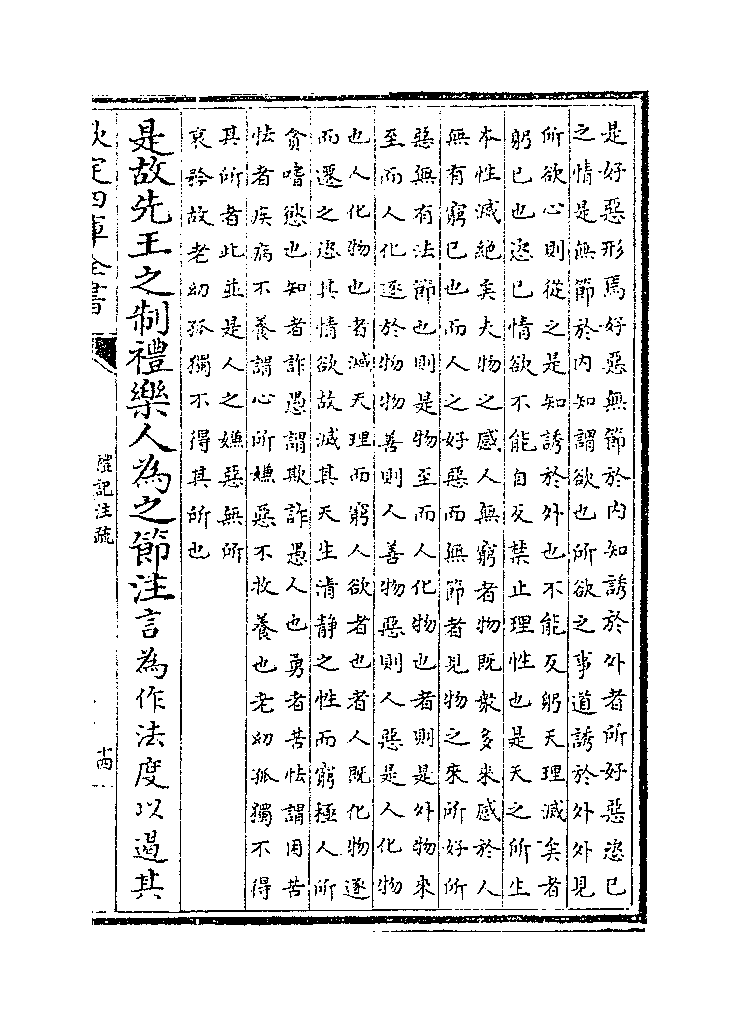 是好惡形焉好惡無節於內知誘於外者所好惡恣已
之情是無節於內知謂欲也所欲之事道誘於外外見
所欲心則從之是知誘於外也不能反躬天理滅矣者
躬已也恣已情欲不能自反禁止理性也是天之所生
本性滅絕矣夫物之感人無窮者物既衆多來感於人
無有窮已也而人之好惡而無節者見物之來所好所
惡無有法節也則是物至而人化物也者則是外物來
至而人化逐於物物善則人善物惡則人惡是人化物
也人化物也者滅天理而窮人欲者也者人既化物逐
而遷之恣其情欲故滅其天生清靜之性而窮極人所
貪嗜慾也知者詐愚謂欺詐愚人也勇者苦怯謂困苦
怯者疾病不養謂心所嫌惡不收養也老幼孤獨不得
其所者此並是人之嫌惡無所
哀矜故老幼孤獨不得其所也
是故先王之制禮樂人為之節注言為作法度以遏其
欽定四庫全書
禮記注疏
十四